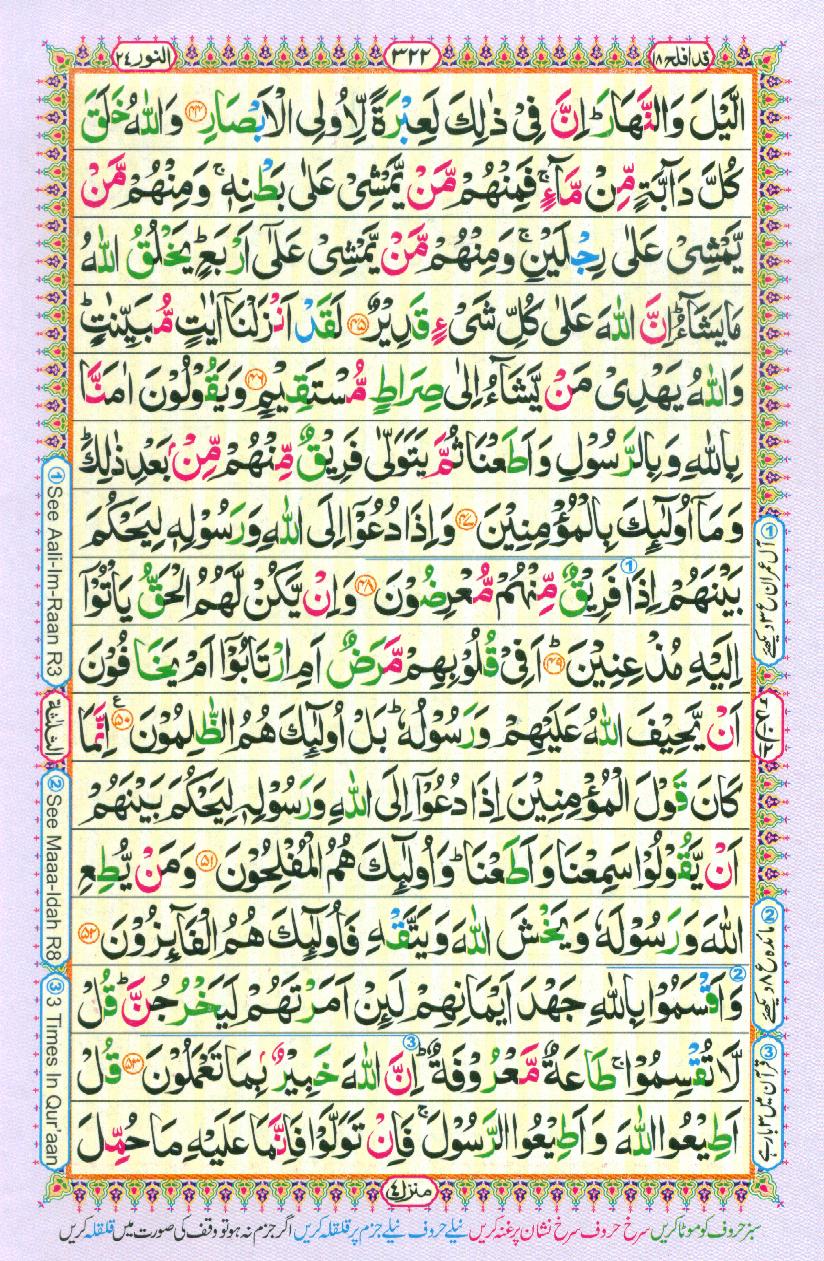 قد افلح ١٨
٣٢٢
النور ٢٤
الَّیۡلَ وَالنَّہَارَ ؕ اِنَّ فِیۡ ذٰلِکَ لَعِبۡرَۃً لِّاُولِی الۡاَبۡصَارِ ﴿۴۴﴾ وَاللّٰہُ خَلَقَ
کُلَّ دَآبَّۃٍ مِّنۡ مَّآءٍ ۚ فَمِنۡہُمۡ مَّنۡ یَّمۡشِیۡ عَلٰی بَطۡنِہٖ ۚ وَمِنۡہُمۡ مَّنۡ
یَّمۡشِیۡ عَلٰی رِجۡلَیۡنِ ۚ وَمِنۡہُمۡ مَّنۡ یَّمۡشِیۡ عَلٰۤی اَرۡبَعٍ ؕ یَخۡلُقُ اللّٰہُ
مَا یَشَآءُ ؕ اِنَّ اللّٰہَ عَلٰی کُلِّ شَیۡءٍ قَدِیۡرٌ ﴿۴۵﴾ لَقَدۡ اَنۡزَلۡنَاۤ اٰیٰتٍ مُّبَیِّنٰتٍ ؕ
وَاللّٰہُ یَہۡدِیۡ مَنۡ یَّشَآءُ اِلٰی صِرَاطٍ مُّسۡتَقِیۡمٍ ﴿۴۶﴾ وَیَقُوۡلُوۡنَ اٰمَنَّا
بِاللّٰہِ وَبِالرَّسُوۡلِ وَاَطَعۡنَا ثُمَّ یَتَوَلّٰی فَرِیۡقٌ مِّنۡہُمۡ مِّنۡۢ بَعۡدِ ذٰلِکَ ؕ
وَمَاۤ اُولٰٓئِکَ بِالۡمُؤۡمِنِیۡنَ ﴿۴۷﴾ وَاِذَا دُعُوۡۤا اِلَی اللّٰہِ وَرَسُوۡلِہٖ لِیَحۡکُمَ
بَیۡنَہُمۡ اِذَا فَرِیۡقٌ مِّنۡہُمۡ مُّعۡرِضُوۡنَ ﴿۴۸﴾ وَاِنۡ یَّکُنۡ لَّہُمُ الۡحَقُّ یَاۡتُوۡۤا
اِلَیۡہِ مُذۡعِنِیۡنَ ﴿۴۹﴾ اَفِیۡ قُلُوۡبِہِمۡ مَّرَضٌ اَمِ ارۡتَابُوۡۤا اَمۡ یَخَافُوۡنَ
اَنۡ یَّحِیۡفَ اللّٰہُ عَلَیۡہِمۡ وَرَسُوۡلُہٗ ؕ بَلۡ اُولٰٓئِکَ ہُمُ الظّٰلِمُوۡنَ ﴿۵۰﴾ اِنَّمَا
کَانَ قَوۡلَ الۡمُؤۡمِنِیۡنَ اِذَا دُعُوۡۤا اِلَی اللّٰہِ وَرَسُوۡلِہٖ لِیَحۡکُمَ بَیۡنَہُمۡ
اَنۡ یَّقُوۡلُوۡا سَمِعۡنَا وَاَطَعۡنَا ؕ وَاُولٰٓئِکَ ہُمُ الۡمُفۡلِحُوۡنَ ﴿۵۱﴾ وَمَنۡ یُّطِعِ
اللّٰہَ وَرَسُوۡلَہٗ وَیَخۡشَ اللّٰہَ وَیَتَّقۡہِ فَاُولٰٓئِکَ ہُمُ الۡفَآئِزُوۡنَ ﴿۵۲﴾
وَاَقۡسَمُوۡا بِاللّٰہِ جَہۡدَ اَیۡمَانِہِمۡ لَئِنۡ اَمَرۡتَہُمۡ لَیَخۡرُجُنَّ ؕ قُلۡ
لَّا تُقۡسِمُوۡا ۚ طَاعَۃٌ مَّعۡرُوۡفَۃٌ ؕ اِنَّ اللّٰہَ خَبِیۡرٌۢ بِمَا تَعۡمَلُوۡنَ ﴿۵۳﴾ قُلۡ
اَطِیۡعُوا اللّٰہَ وَاَطِیۡعُوا الرَّسُوۡلَ ۚ فَاِنۡ تَوَلَّوۡا فَاِنَّمَا عَلَیۡہِ مَا حُمِّلَ
① آل عمران ع ٣ دیکھئے
② مائدہ ع ٨ دیکھئے
③ قرآن میں ٣ بار ہے
① See Aali-Im-Raan R3
الثلٰثة
② See Maaa-Idah R8
③ 3 Times In Qur'aan
منزل ٤
سبز حروف کو موٹا کریں سرخ حروف سرخ نشان پر غنہ کریں نیلے حروف نیلے جزم پر قلقلہ کریں اگر جزم نہ ہو تو وقف کی صورت میں قلقلہ کریں